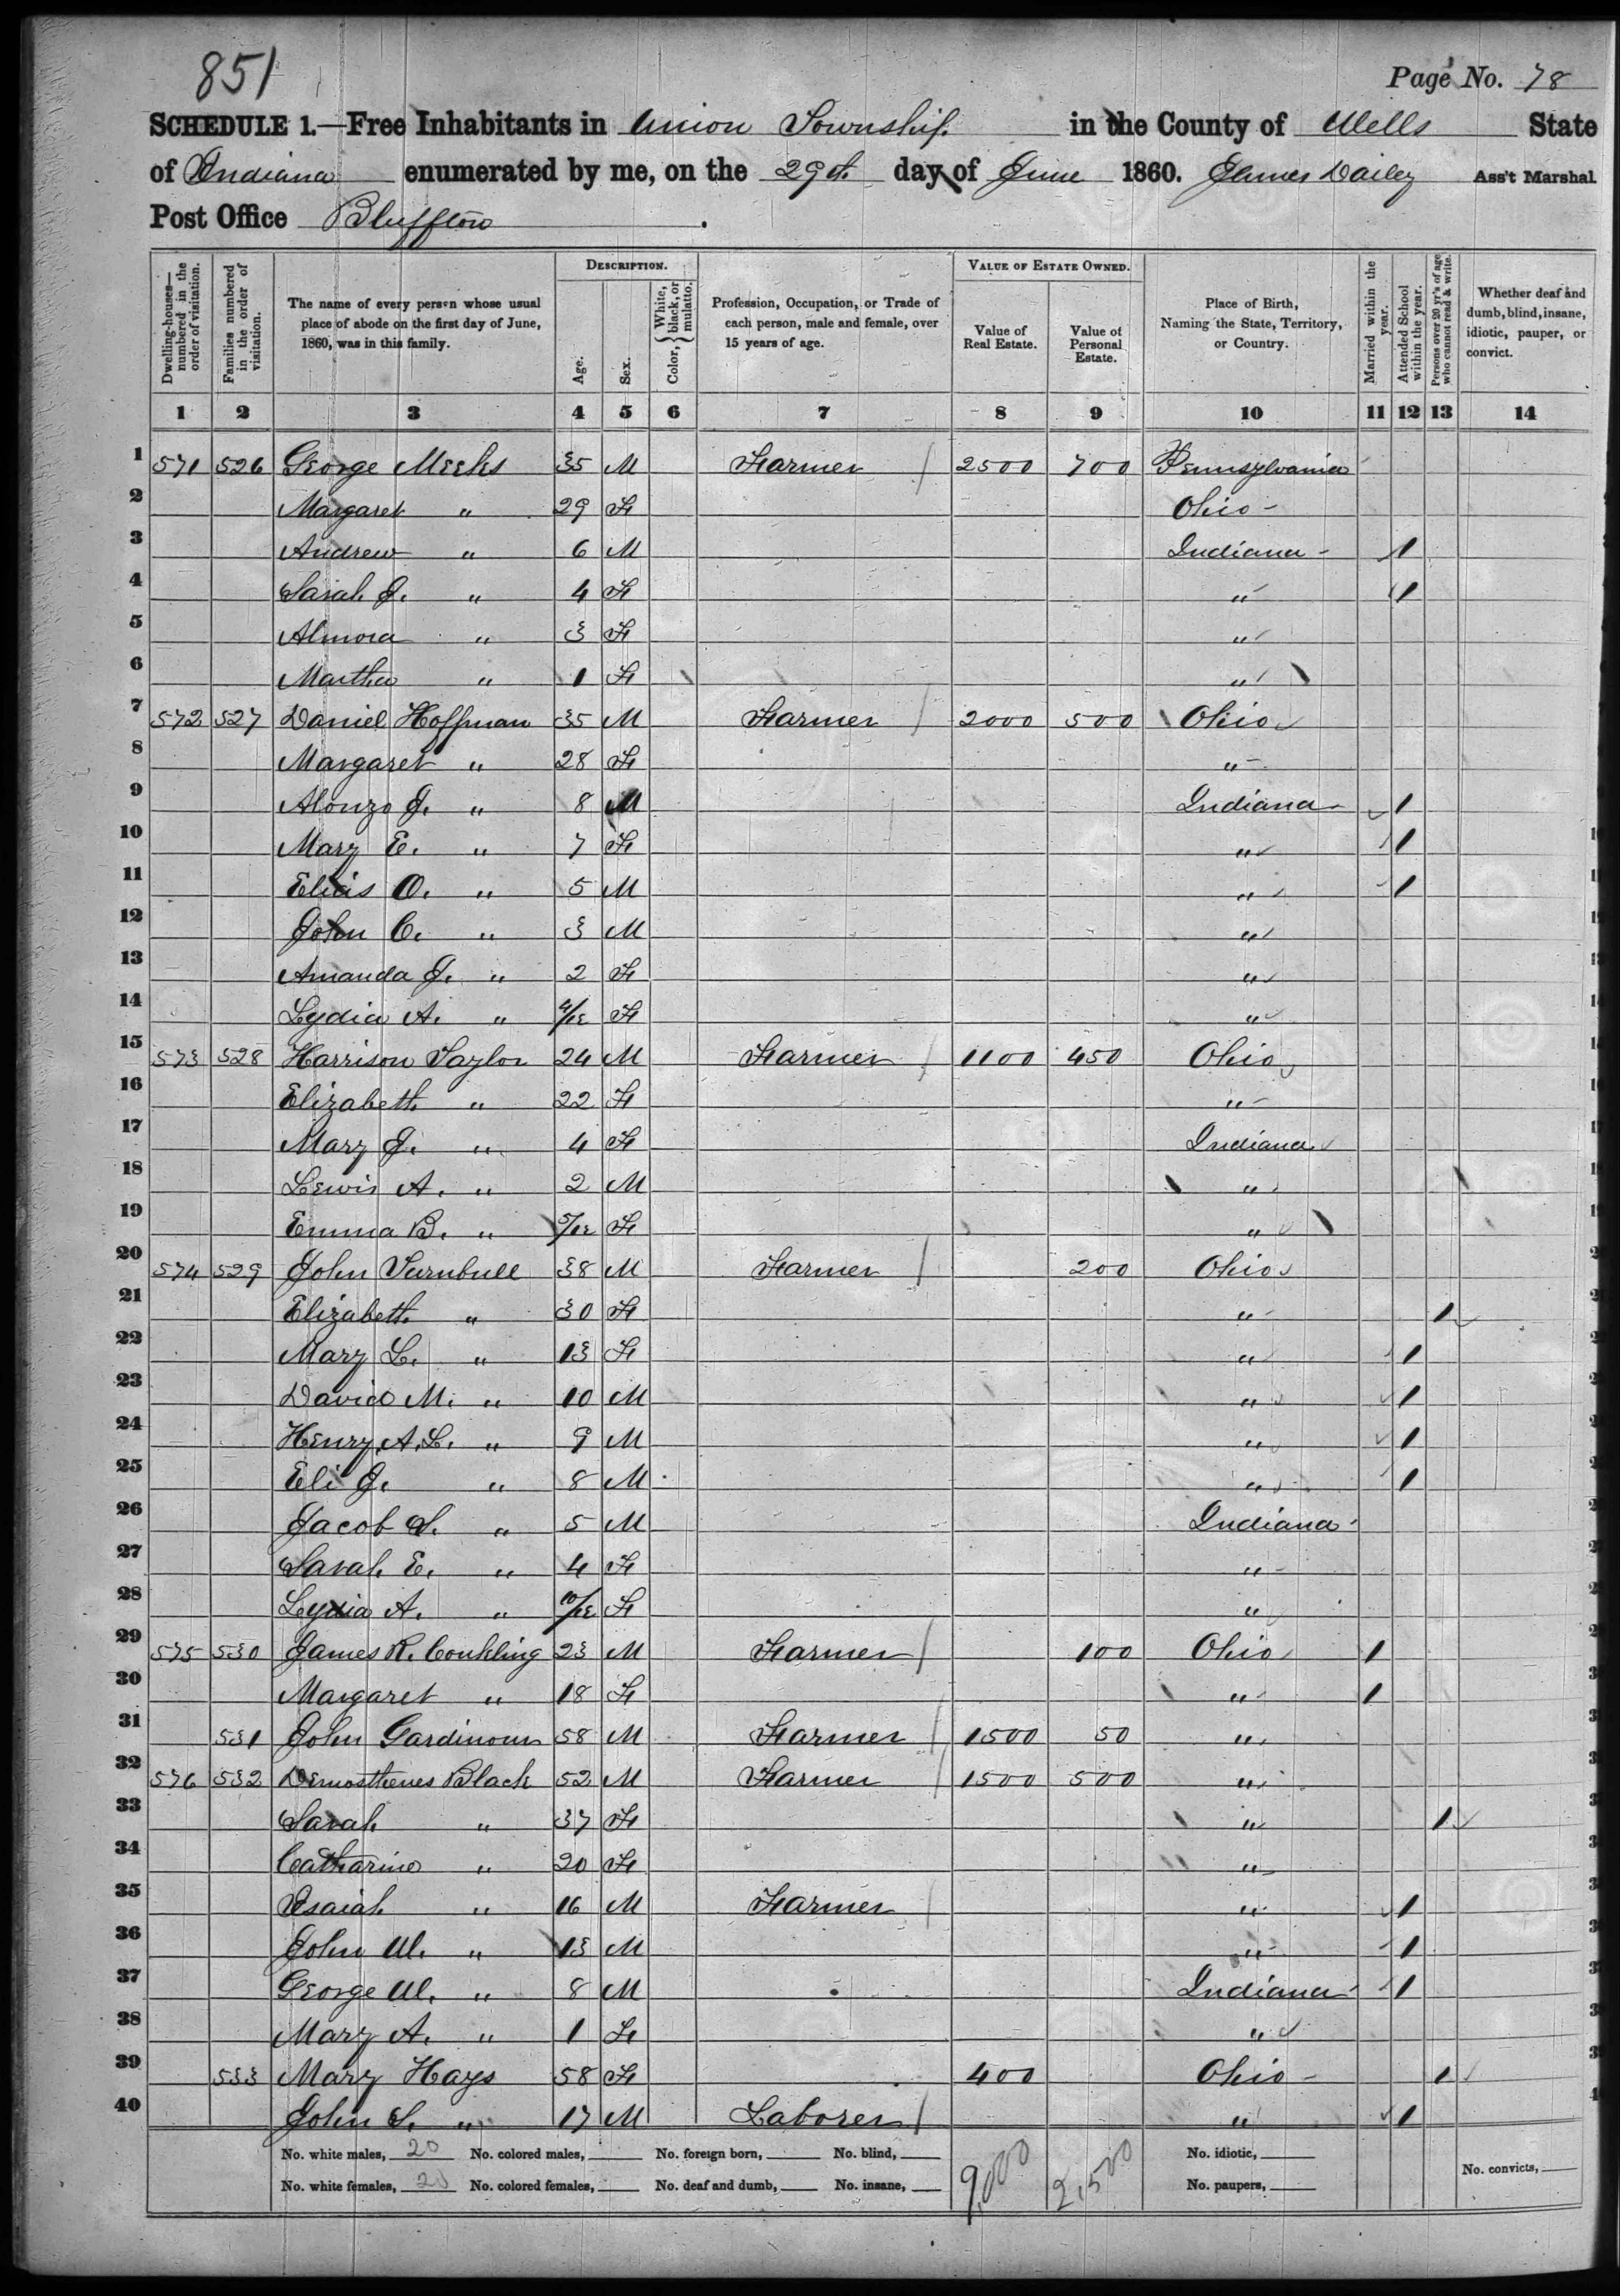 851
Page No. 78
SCHEDULE 1.—Free Inhabitants in Union Township in the County of Wells State
of Indiana enumerated by me, on the 29th day of June 1860. James Dailey Ass't Marshal
Post Office Bluffton.
DESCRIPTION. VALUE OF ESTATE OWNED.
Dwelling-houses—numbered in the order of visitation.
Families numbered in the order of visitation.
The name of every person whose usual place of abode on the first day of June, 1860, was in this family.
Age.
Sex.
Color, { White, black, or mulatto.
Profession, Occupation, or Trade of each person, male and female, over 15 years of age.
Value of Real Estate.
Value of Personal Estate.
Place of Birth, Naming the State, Territory, or Country.
Married within the year.
Attended School within the year.
Persons over 20 yr's of age who cannot read & write.
Whether deaf and dumb, blind, insane, idiotic, pauper, or convict.
1 2 3 4 5 6 7 8 9 10 11 12 13 14
1 571 526 George Meeks 35 M Farmer 2500 700 Pennsylvania
2 Margaret " 29 F Ohio
3 Andrew " 6 M Indiana 1
4 Sarah J. " 4 F " 1
5 Almora " 3 F "
6 Martha " 1 F "
7 572 527 Daniel Hoffman 35 M Farmer 2000 500 Ohio
8 Margaret " 28 F "
9 Alonzo J. " 8 M Indiana 1
10 Mary E. " 7 F " 1
11 Elias O. " 5 M " 1
12 John C. " 3 M "
13 Amanda J. " 2 F "
14 Lydia A. " 4/12 F "
15 573 528 Harrison Taylor 24 M Farmer 1100 450 Ohio
16 Elizabeth " 22 F "
17 Mary J. " 4 F Indiana
18 Lewis A. " 2 M "
19 Emma B. " 5/12 F "
20 574 529 John Turnbull 38 M Farmer 200 Ohio
21 Elizabeth " 30 F " 1
22 Mary L. " 13 F " 1
23 David M. " 10 M " 1
24 Henry A. L. " 9 M " 1
25 Eli J. " 8 M " 1
26 Jacob S. " 5 M Indiana
27 Sarah E. " 4 F "
28 Lydia A. " 10/12 F "
29 575 530 James R. Conkling 23 M Farmer 100 Ohio 1
30 Margaret " 18 F " 1
31 531 John Gardinour 58 M Farmer 1500 50 "
32 576 532 Demosthenes Black 52 M Farmer 1500 500 "
33 Sarah " 37 F " 1
34 Catharine " 20 F "
35 Isaiah " 16 M Farmer " 1
36 John W. " 13 M " 1
37 George W. " 8 M Indiana 1
38 Mary A. " 1 F "
39 533 Mary Hays 58 F 400 Ohio 1
40 John S. " 17 M Laborer " 1
No. white males, 20 No. colored males, No. foreign born, No. blind, 9,000 2,500 No. idiotic,
No. white females, 20 No. colored females, No. deaf and dumb, No. insane, No. paupers, No. convicts,